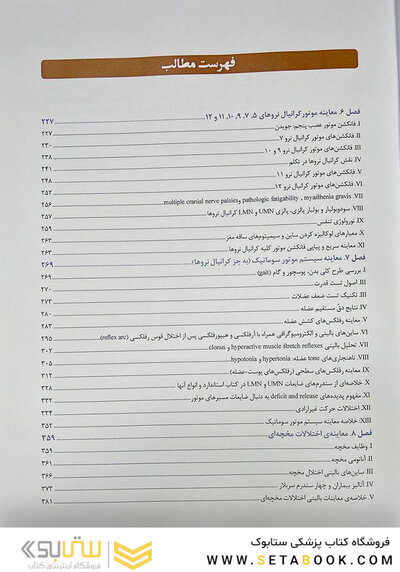 فهرست مطالب
فصل ۶. معاینه موتور کرانیال نروهای ۵، ۷، ۹، ۱۰، ۱۱ و ۱۲ ۲۲۷
I. فانکشن موتور عصب پنجم: جویدن ۲۲۷
II. فانکشن‌های موتور کرانیال نرو ۷ ۲۳۰
III. فانکشن‌های موتور کرانیال نرو ۹ و ۱۰ ۲۳۸
IV. نقش کرانیال نروها در تکلم ۲۴۱
V. فانکشن‌های موتور کرانیال نرو ۱۱ ۲۴۸
VI. فانکشن‌های موتور کرانیال نرو ۱۲ ۲۵۲
VII. pathologic fatigability ، myasthenia gravis و multiple cranial nerve palsies ۲۵۶
VIII. سودوبولبار و بولبار پالزی، پالزی UMN و LMN کرانیال نروها ۲۵۷
IX. نورولوژی تنفس ۲۵۹
X. معیارهای لوکالیزه کردن ساین و سیمپتوم‌های ساقه مغز ۲۶۳
XI. معاینه سریع و پیاپی فانکشن موتور کلیه کرانیال نروها ۲۶۳
فصل ۷. معاینه سیستم موتور سوماتیک (به جز کرانیال نروها) ۲۶۹
I. بررسی طرح کلی بدن، پوسچور و گام (gait) ۲۷۰
II. اصول تست قدرت ۲۷۰
III. تکنیک تست ضعف عضلات ۲۷۳
IV. نتایج دقّ مستقیم عضله
V. معاینه رفلکس‌های کشش عضله
VI. ساین‌های بالینی و الکترومیوگرافی همراه با آرفلکسی و هیپورفلکسی پس از اختلال قوس رفلکسی (reflex arc) ۲۹۵
VII. تحلیل بالینی hyperactive muscle stretch reflexes و clonus ۳۰۲
VIII. ناهنجاری‌های tone عضله: hypertonia و hypotonia ۳۰۵
IX. معاینه رفلکس‌های سطحی (رفلکس‌های پوست-عضله) ۳۱۲
X. خلاصه‌ای از سندرم‌های ضایعات UMN و LMN در کتاب استاندارد و انواع آنها ۳۲۸
XI. مفهوم پدیده‌های deficit and release به دنبال ضایعات مسیرهای موتور ۳۳۲
XII. اختلالات حرکت غیرارادی ۳۳۴
XIII. خلاصه معاینه سیستم موتور سوماتیک ۳۵۲
فصل ۸. معاینه‌ی اختلالات مخچه‌ای ۳۵۹
I. وظایف مخچه ۳۵۹
II. آناتومی مخچه ۳۶۱
III. ساین‌های بالینی اختلال مخچه ۳۶۶
IV. آنالیز بیماران و چهار سندرم سربلار ۳۷۳
V. خلاصه‌ی معاینات بالینی اختلالات مخچه‌ای ۳۸۱
ستابوک
فروشگاه اینترنتی کتاب
فروشگاه کتاب پزشکی ستابوک
WWW.SETABOOK.COM